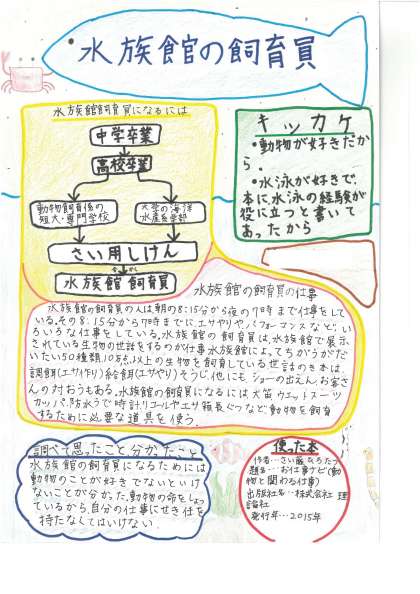 水族館の飼育員
水族館飼育員になるには
中学卒業
高校卒業
動物飼育係の
短大・専門学校
大学の海洋
水産系学部
さい用しけん
水族館 飼育員
キッカケ
・動物が好きだか
ら.
・水泳が好きで、
本に水泳の経験が
役に立つと書いて
あったから
水族館の飼育員の仕事
水族館の飼育員の人は朝の8:15分から夜の7時まで仕事をして
いる。その8:15分から7時までにエサやりやパフォーマンスなど、い
ろいろな仕事をしている。水族館の飼育員は、水族館で展示
されている生物の世話をするのが仕事水族館によってちがうがだ
いたい50種類、10万点以上の生物を飼育している世話のき本は、
調餌(エサ作り)給餌(エサやり)そうじ他にもショーの出えん、お客さ
んの対おうもある。水族館の飼育員になるには犬笛ウエットスーツ
カッパ、防水うで時計リゴールやエサ箱長ぐつなど動物を飼育
するために必要な道具を使う。
調べて思ったこと分かったこと
水族館の飼育員になるためには
動物のことが好きでないといけ
ないことが分った。動物の命をしょっ
ているから、自分の仕事にせき任を
持たなくてはいけない。
使った本
作者…さい藤ひろたつ
題名…お仕事ナビ(動
物と関わる仕事)
出版社名…株式会社 理
論社
発行年…2015年